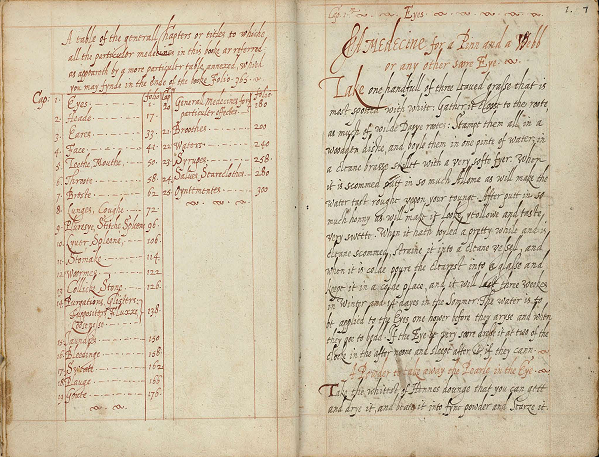 A table of the generall chapters or titles to whiche
all the particuler medecines in this booke ar referred
as appeareth by a more particuler table annexed, which
you may fynde in the ende of the booke Folio · 363 ·
Cap: folio
1. Eyes 1
2. Heade 17
3. Eares 33
4. Face 41
5. Teethe Mouthe 50
6. Throte 58
7. Breste 62
8. Lunges, Coughe 72
9. Pluresye, Stiche Spleene 96
10. Lyver Spleene 106
11. Stomake 114
12. Wormes 122
13. Collicke Stone 126
14. Purgations, Glisters
Suppositor Fluxes 138
15. 150
16. Bleedinge 158
17. 162
18. Plauge 166
19. Goute 176
folio
20. Generall Medecines for
particuler effectes 180
21. Broothes 200
22. Waters 240
23. Syrupes 258
24. Salves, Seareclothes 280
25. Oyntmentes 300
Cap. 1 Eyes 1. 7
A Medecine for a Pinn and a Webb
or any other sore Eye
Take one handfull of three leaved grasse that is
most spotted with white: Gather it close to the roote
as much of wilde Dasye rootes: Stampt them all in a
wooden dishe, and boyle them in one pinte of water, in
a cleane brasse skellet with a very softe fyer. When
it is scommed put in so much Allome as will make the
water tast rought upon your tounge. After putt in so
much honny as will make it looke yellowe and taste
very sweete. When it hath boyled a prettye while and is
cleane scommed, straine it into a cleane vessell, and
when it is colde powre the clearest into a glasse and
keepe it in a colde place, and it will last three weekes
in Winter and 14 dayes in the Sommer. The water is to
be applied to the Eyes one hower before they aryse and when
they goe to bedd. If the Eye be very sore dresse it at two of the
clocke in the after noone and sleepe after it if they cann.
A Powder to take away the Pearle in the Eye
Take the whitest of Hennes dounge that you can gett
and drye it, and beate it into fyne powder and Searze it